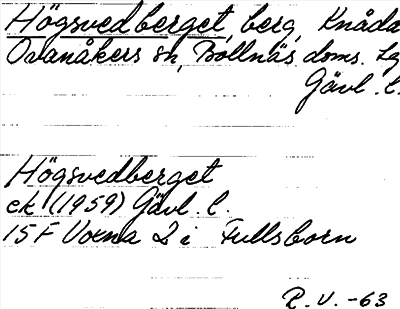 Högsvedberget, berg, Knåda
Ovanåkers sn, Bollnäs doms. lg
Gävl. l.
Högsvedberget
ek (1959) Gävl. l.
15F Voxna 2 i Fullsborn
R. V. -63